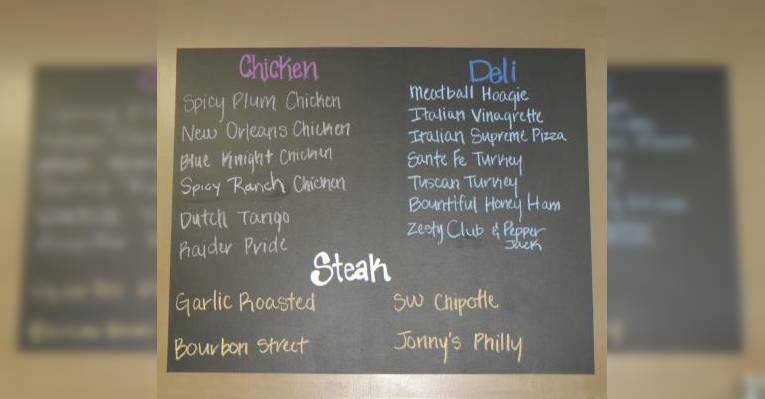 Chicken
Spicy Plum Chicken
New Orleans Chicken
Blue Knight Chicken
Spicy Ranch Chicken
Dutch Tango
Raider Pride
Deli
Meatball Hoagie
Italian Vinagrette
Italian Supreme Pizza
Sante Fe Turkey
Tuscan Turkey
Bountiful Honey Ham
Zesty Club & Pepper
Jack
Steak
Garlic Roasted
Bourbon Street
SW Chipotle
Jonny's Philly